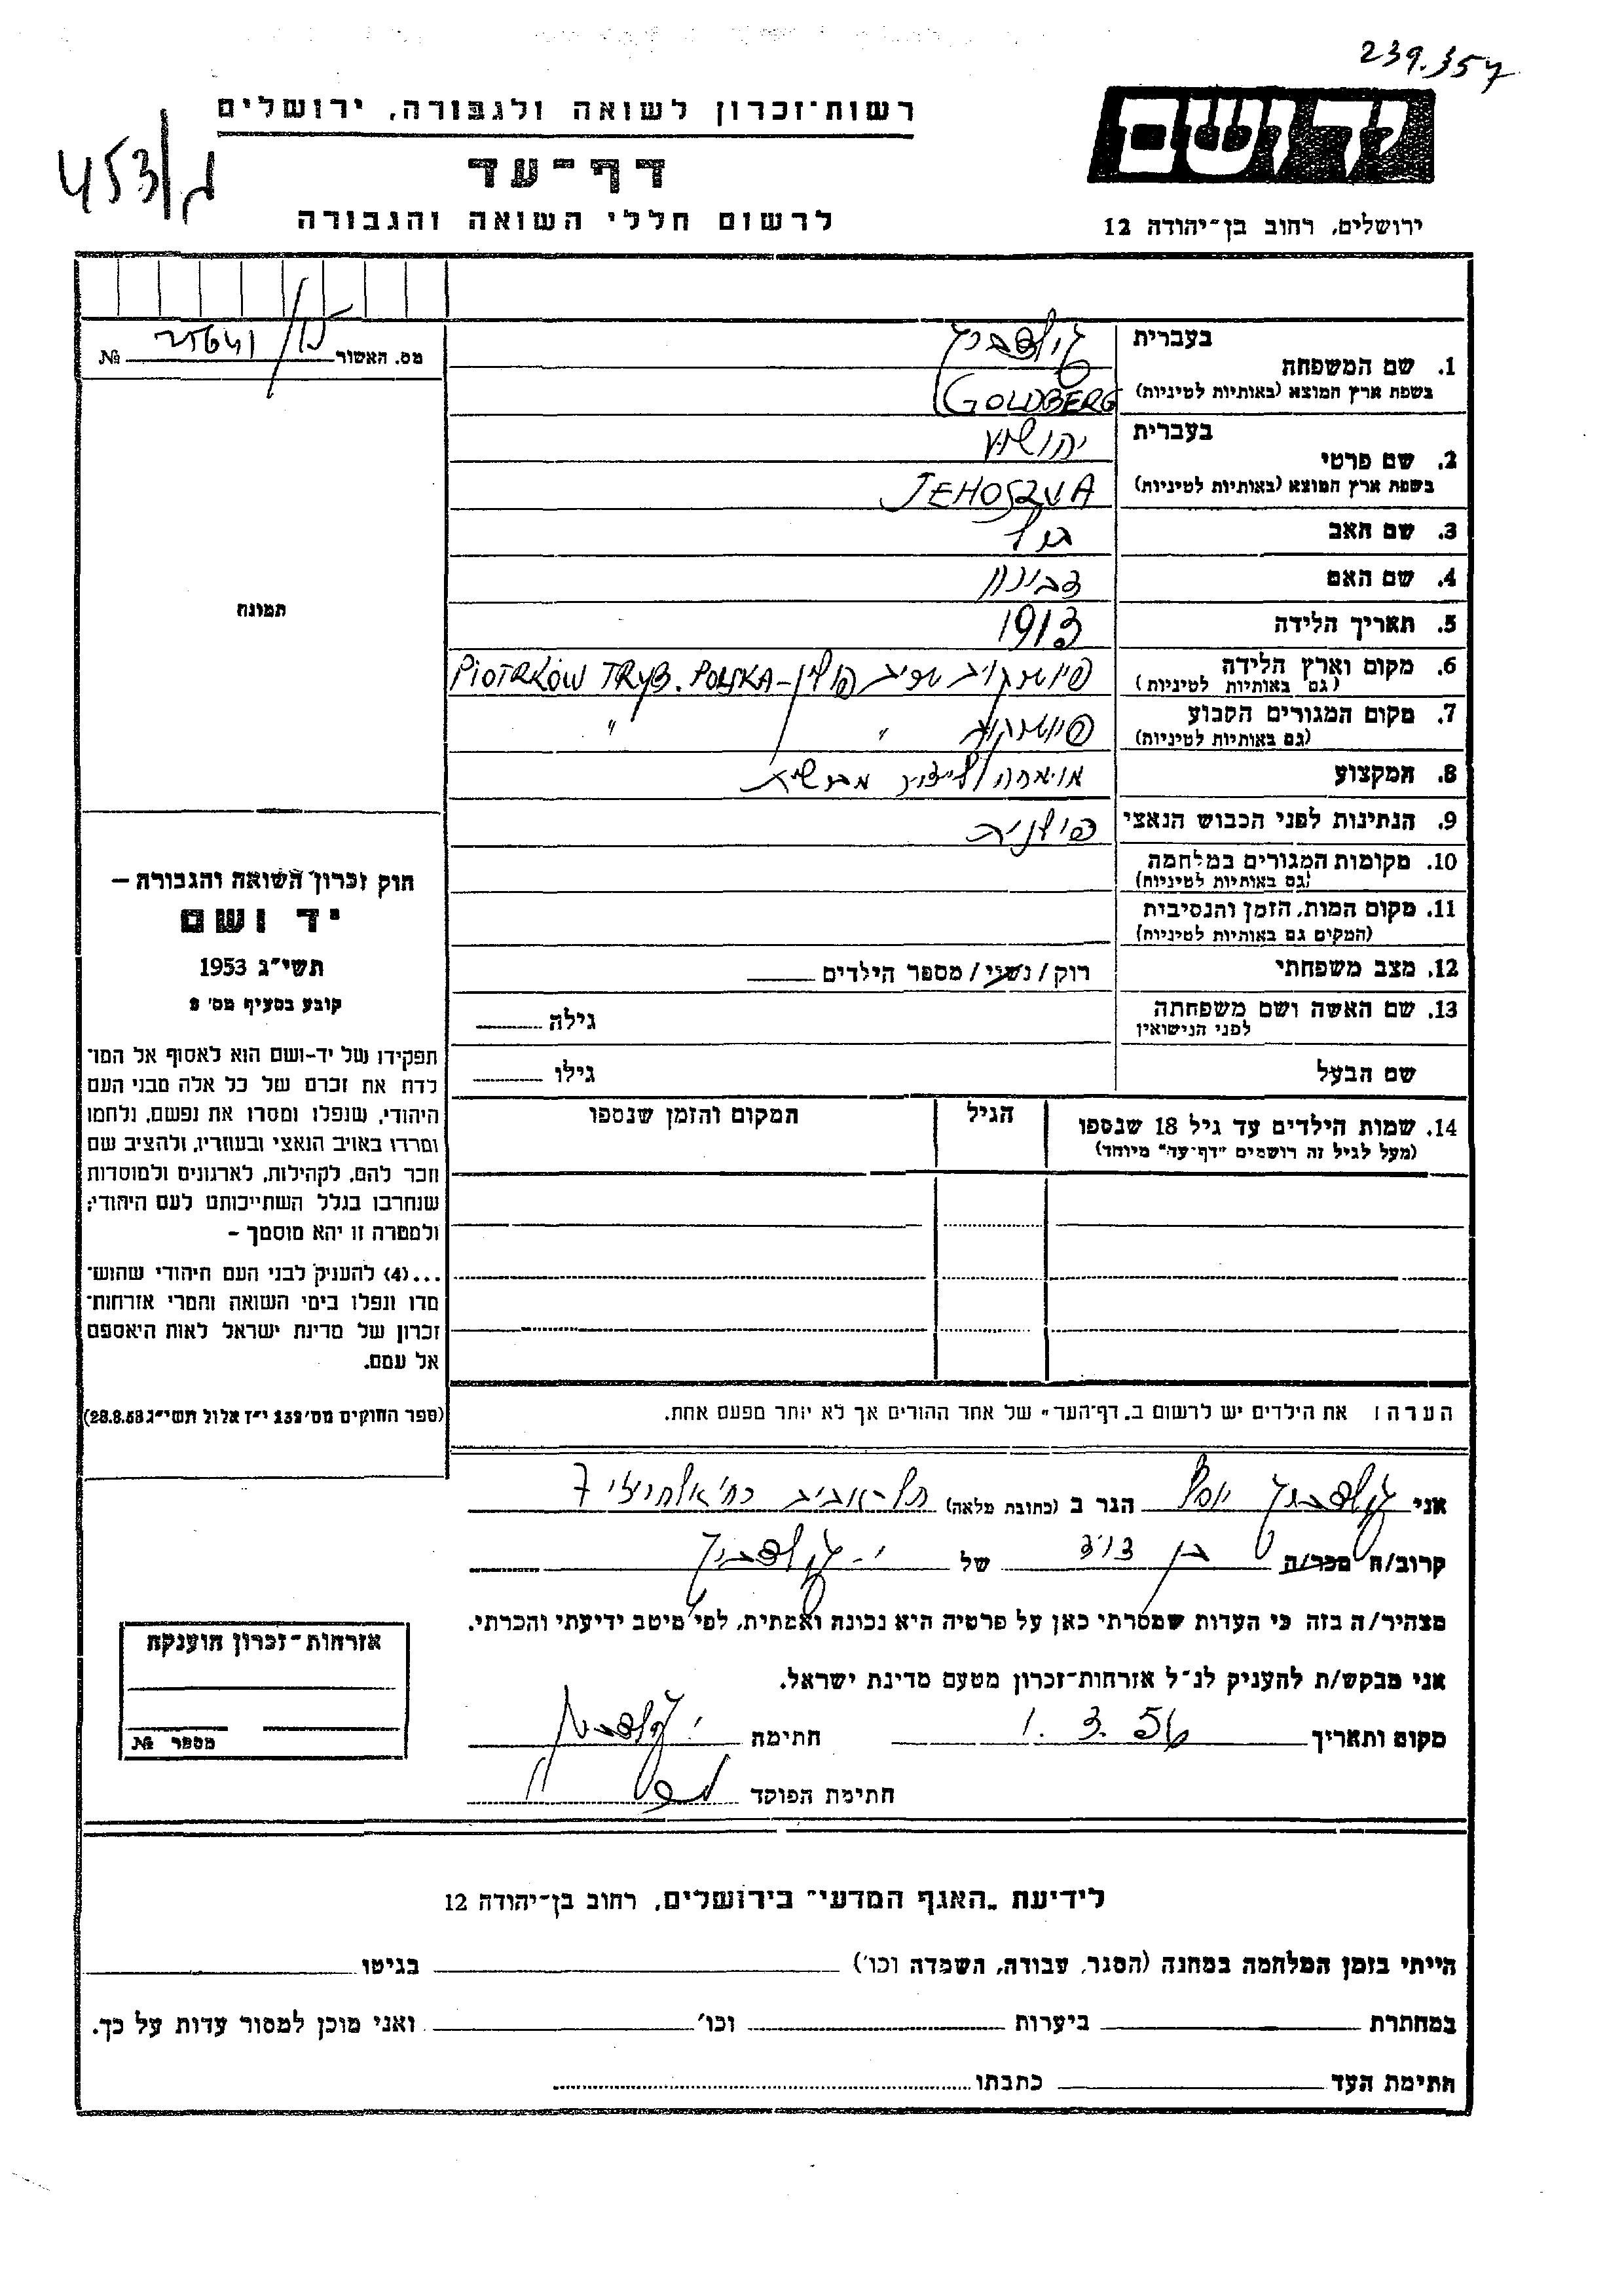 239.357
רשות־זכרון לשואה ולגבורה, ירושלים
453/
דף־עד
לרשום חללי השואה והגבורה
ידושם
ירושלים, רחוב בן־יהודה 12
מס. האשור № 
בעברית גולדברג
1. שם המשפחה
בשפת ארץ המוצא (באותיות לטיניות) GOLDBERG
בעברית יהושע
2. שם פרטי
בשפת ארץ המוצא (באותיות לטיניות) JEHOSZUA
3. שם האב
4. שם האם
5. תאריך הלידה 1913
6. מקום וארץ הלידה פולין - PIOTRKÓW TRYB. POLSKA
(גם באותיות לטיניות)
7. מקום המגורים הקבוע פיוטרקוב " "
(גם באותיות לטיניות)
8. המקצוע
9. הנתינות לפני הכבוש הנאצי פולנית
10. מקומות המגורים במלחמה
(גם באותיות לטיניות)
11. מקום המות, הזמן והנסיבות
(המקום גם באותיות לטיניות)
12. מצב משפחתי רוק / נשוי / מספר הילדים
13. שם האשה ושם משפחתה גילה
לפני הנישואין
שם הבעל גילו
14. שמות הילדים עד גיל 18 שנספו הגיל המקום והזמן שנספו
(מעל לגיל זה רושמים "דף־עד" מיוחד)
תמונה
חוק זכרון השואה והגבורה —
יד ושם
תשי"ג 1953
קובע בסעיף מס' 2
תפקידו של יד-ושם הוא לאסוף אל המו־
לדת את זכרם של כל אלה מבני העם
היהודי, שנפלו ומסרו את נפשם, נלחמו
ומרדו באויב הנאצי ובעוזריו, ולהציב שם
וזכר להם, לקהילות, לארגונים ולמוסדות
שנחרבו בגלל השתייכותם לעם היהודי;
ולמטרה זו יהא מוסמך -
...(4) להעניק לבני העם היהודי שהוש־
מדו ונפלו בימי השואה והמרי אזרחות־
זכרון של מדינת ישראל לאות היאספם
אל עמם.
(ספר החוקים מס' 132 י"ז אלול תשי"ג 28.8.53)
הערה: את הילדים יש לרשום ב„דף־העד" של אחד ההורים אך לא יותר מפעם אחת.
אני גולדברג יוסף הגר ב (כתובת מלאה) תל-אביב רח' אלחריזי 7
קרוב/ה מכר/ה בן דוד של י. גולדברג
מצהיר/ה בזה כי העדות שמסרתי כאן על פרטיה היא נכונה ואמתית, לפי מיטב ידיעתי והכרתי.
אני מבקש/ת להעניק לנ"ל אזרחות־זכרון מטעם מדינת ישראל.
מקום ותאריך 1. 3. 56 חתימה י. גולדברג
חתימת הפוקד
אזרחות־זכרון הוענקה
מספר №
לידיעת „האגף המדעי" בירושלים, רחוב בן־יהודה 12
הייתי בזמן המלחמה במחנה (הסגר, עבודה, השמדה וכו') בגיטו
במחתרת ביערות וכו' ואני מוכן למסור עדות על כך.
חתימת העד כתבתו